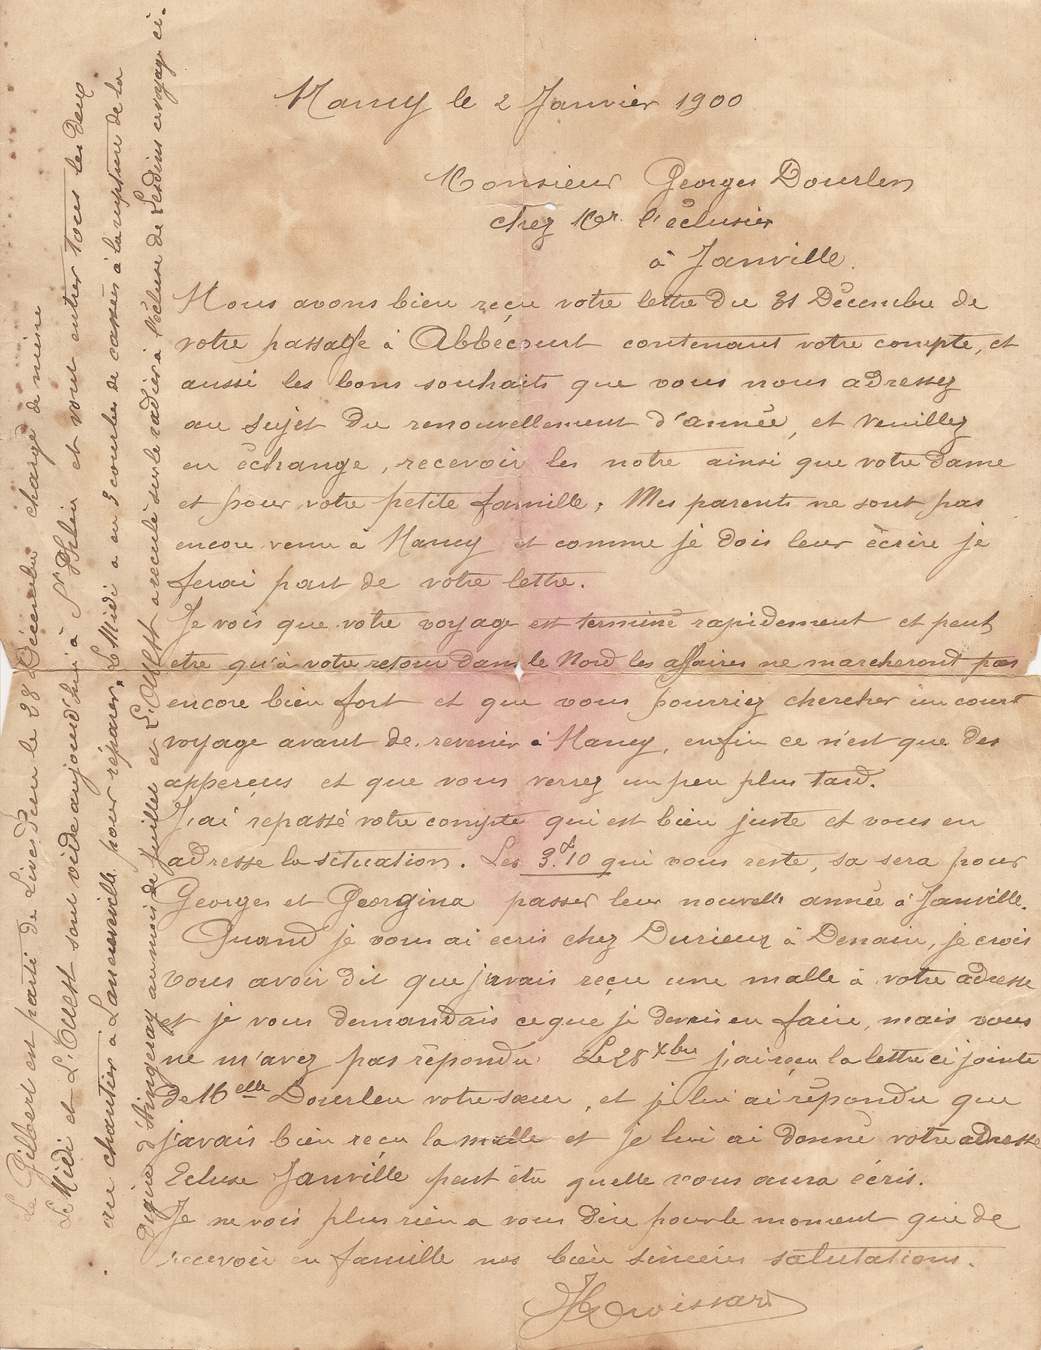 Nancy le 2 Janvier 1900
Monsieur Georges Dourlen
chez Mr. l'éclusier
à Janville.
Nous avons bien reçu votre lettre du 31 Décembre de
votre passage à Abbécourt contenant votre compte, et
aussi les bons souhaits que vous nous adressez
au sujet du renouvellement d'année, et veuillez
en échange, recevoir les notre ainsi que votre Dame
et pour votre petite famille. Mes parents ne sont pas
encore venu à Nancy et comme je dois leur écrire je
ferai part de votre lettre.
Je vois que votre voyage est terminé rapidement et peut
etre qu'à votre retour dans le Nord les affaires ne marcheront pas
encore bien fort et que vous pourriez chercher un court
voyage avant de revenir à Nancy, enfin ce n'est que des
apperçus et que vous verrez un peu plus tard.
J'ai repassé votre compte qui est bien juste et vous en
adresse la situation. Les 3.10 qui vous reste, sa sera pour
Georges et Georgina passer leur nouvelle année à Janville.
Quand je vous ai ecris chez Durieux à Denain, je crois
vous avoir dit que j'avais reçu une malle à votre adresse
et je vous demandais ce que je devais en faire, mais vous
ne m'avez pas répondu. Le 28 Xbre j'ai reçu la lettre ci jointe
de Melle Dourlen votre sœur, et je lui ai répondu que
j'avais bien reçu la malle et je lui ai donné votre adresse
Ecluse Janville peut être quelle vous aura écris.
Je ne vois plus rien a vous dire pour le moment que de
recevoir en famille nos bien sincères salutations.
Croissard
Le Gilbert est parti de Liverdun le 28 Décembre chargé de mine
Le Midi et L'Ouest sont vide aujourd'hui à St Phlin et vont entrer tous les deux
au chantier à Laneuveville pour réparer, Le Midi a en 3 courbes de cassées à la rupture de la
digue d' au mois de Juillet et L'Ouest a reculé sur le radier à l'écluse de Lesdins ci.